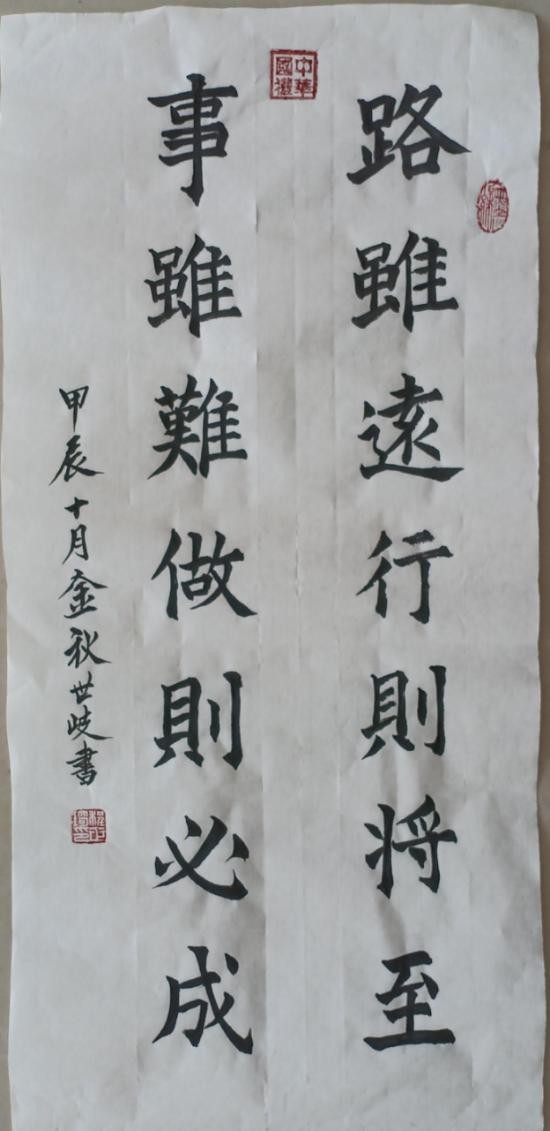 路雖遠行則将至
事雖難做則必成
甲辰十月金秋世岐書
中華